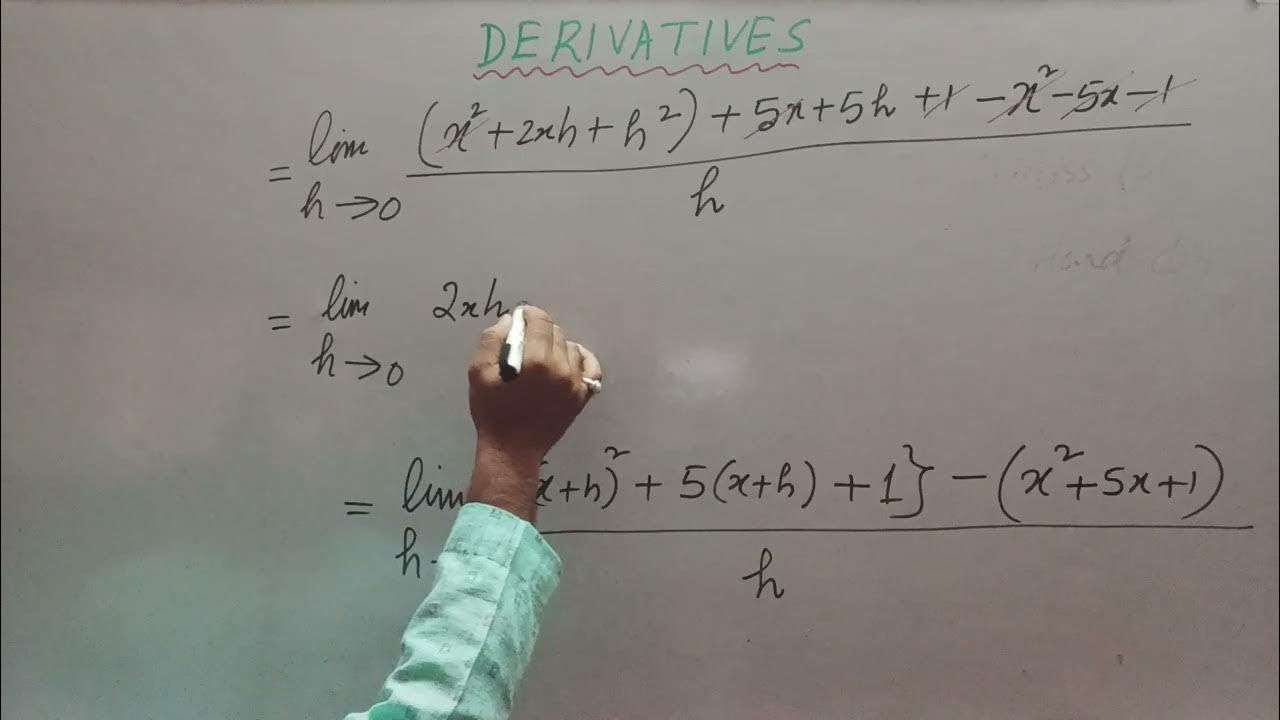 DERIVATIVES
= lim (x²+2xh+h²)+5x+5h+1-x²-5x-1
h→0 h
= lim 2xh
h→0
= lim (x+h)²+5(x+h)+1}-(x²+5x+1)
h h